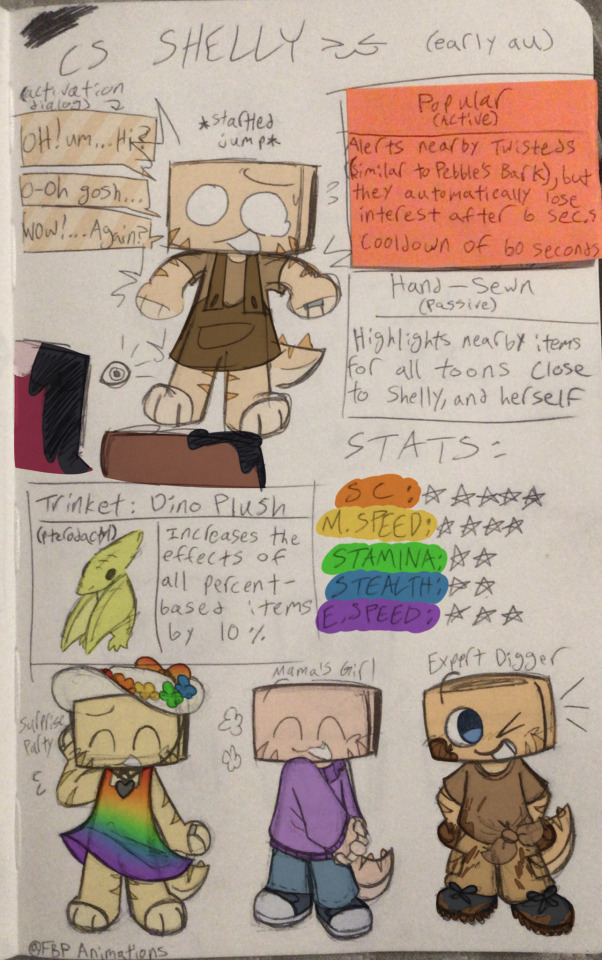 CS SHELLY (early au)
(activation
dialog)
OH! um... Hi?
O-Oh gosh...
WOW!... Again?
*startled
jump*
Popular
(Active)
Alerts nearby Twisteds
(similar to Pebble's Bark), but
they automatically lose
interest after 6 secs
Cooldown of 60 seconds
Hand-Sewn
(Passive)
Highlights nearby items
for all toons close
to Shelly, and herself
STATS:
SC: ☆☆☆☆☆
M. SPEED: ☆☆☆☆
STAMINA: ☆☆
STEALTH: ☆☆
E. SPEED: ☆☆☆
Trinket: Dino Plush
(pterodactyl)
Increases the
effects of
all percent-
based items
by 10%
Surprise
Party
Mama's Girl
Expert Digger
@FBP Animations